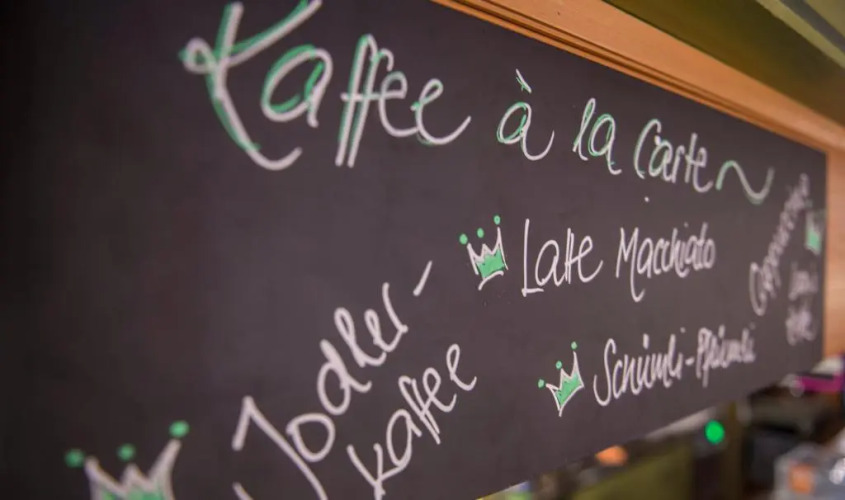 Kaffee à la Carte
Latte Macchiato
Schümli-Pflümli
Jodler-
kaffee
Cappuccino